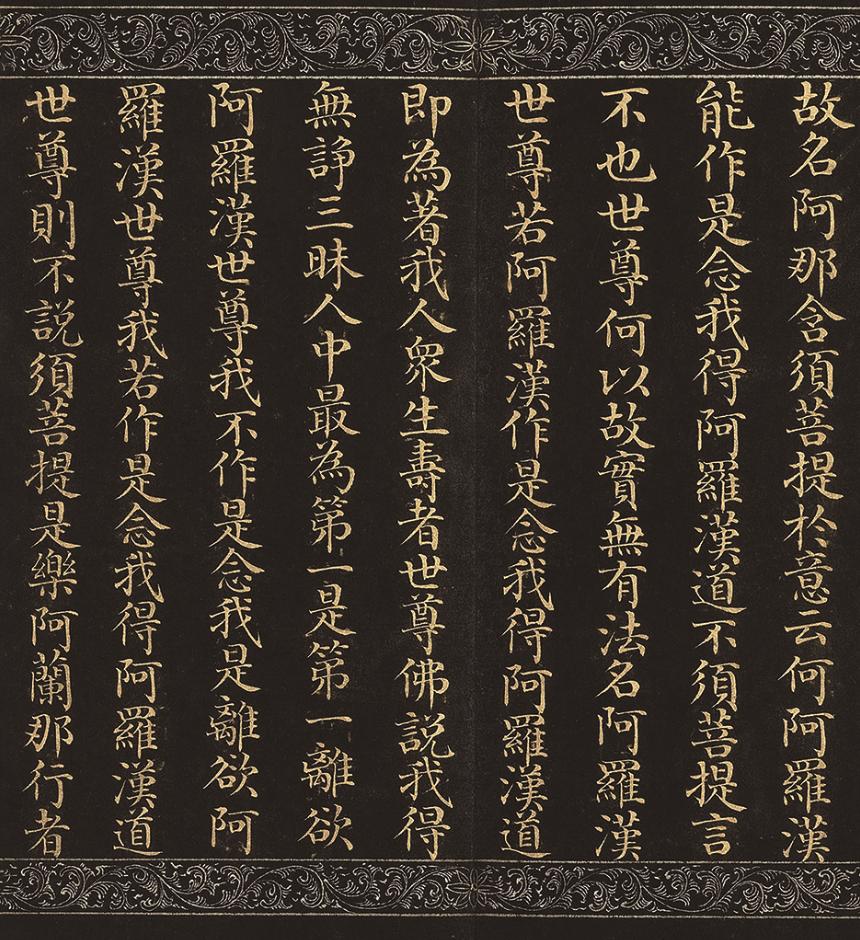 故名阿那含須菩提於意云何阿羅漢
能作是念我得阿羅漢道不須菩提言
不也世尊何以故實無有法名阿羅漢
世尊若阿羅漢作是念我得阿羅漢道
即為著我人衆生壽者世尊佛說我得
無諍三昧人中最為第一是第一離欲
阿羅漢世尊我不作是念我是離欲阿
羅漢世尊我若作是念我得阿羅漢道
世尊則不說須菩提是樂阿蘭那行者